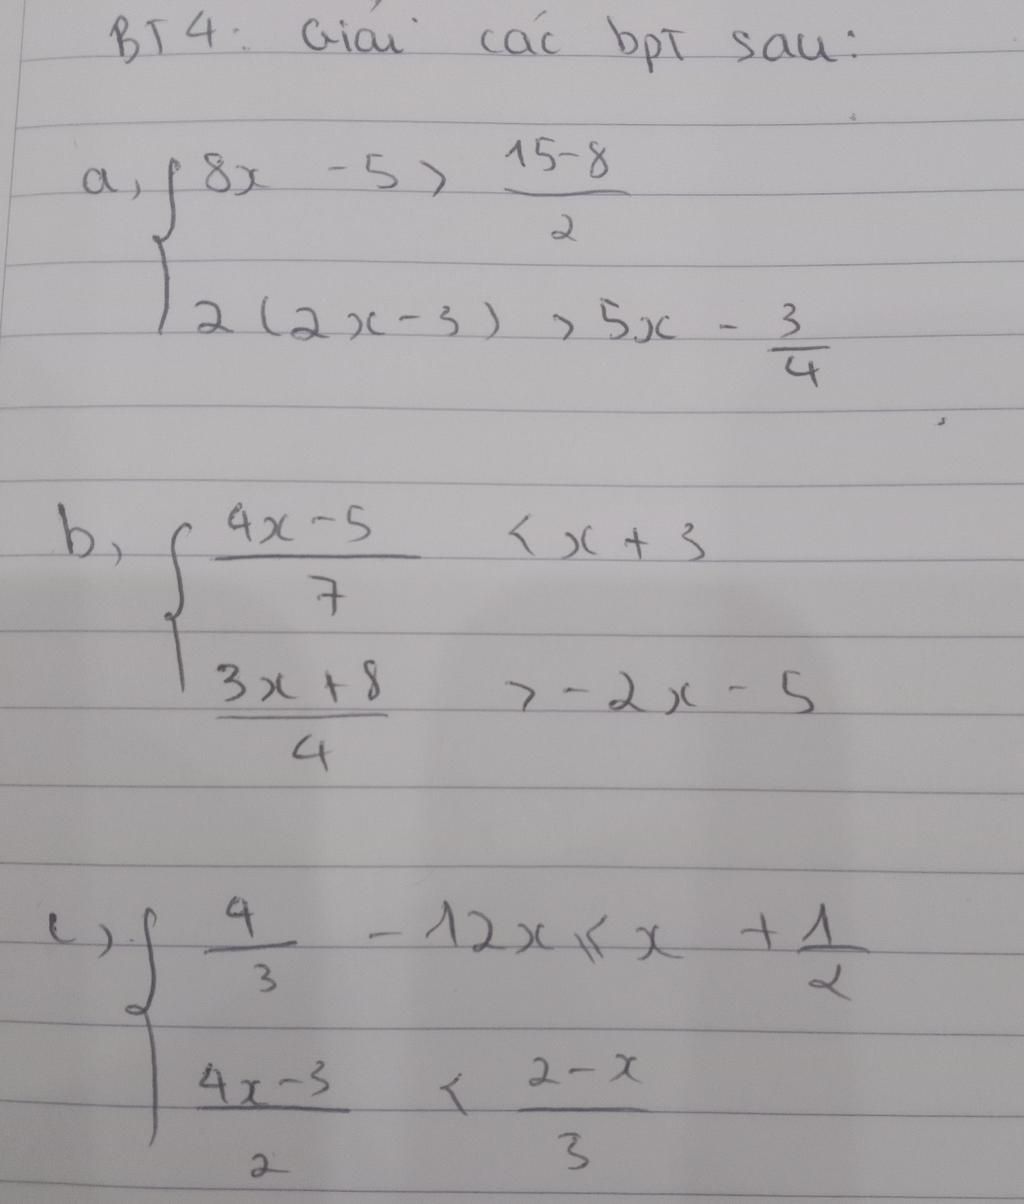 BT4: Giải các bpT sau:
a, { 8x - 5 > \frac{15-8}{2}
2(2x-3) > 5x - \frac{3}{4}
b, { \frac{4x-5}{7} < x + 3
\frac{3x+8}{4} > -2x - 5
c, { \frac{4}{3} - 12x ≤ x + \frac{1}{2}
\frac{4x-3}{2} < \frac{2-x}{3}